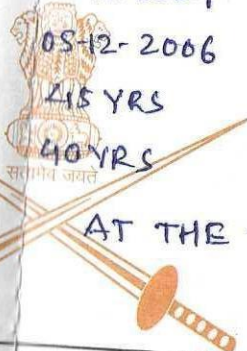 05-12-2006
45 YRS
40 YRS
सत्यमेव जयते
AT THE